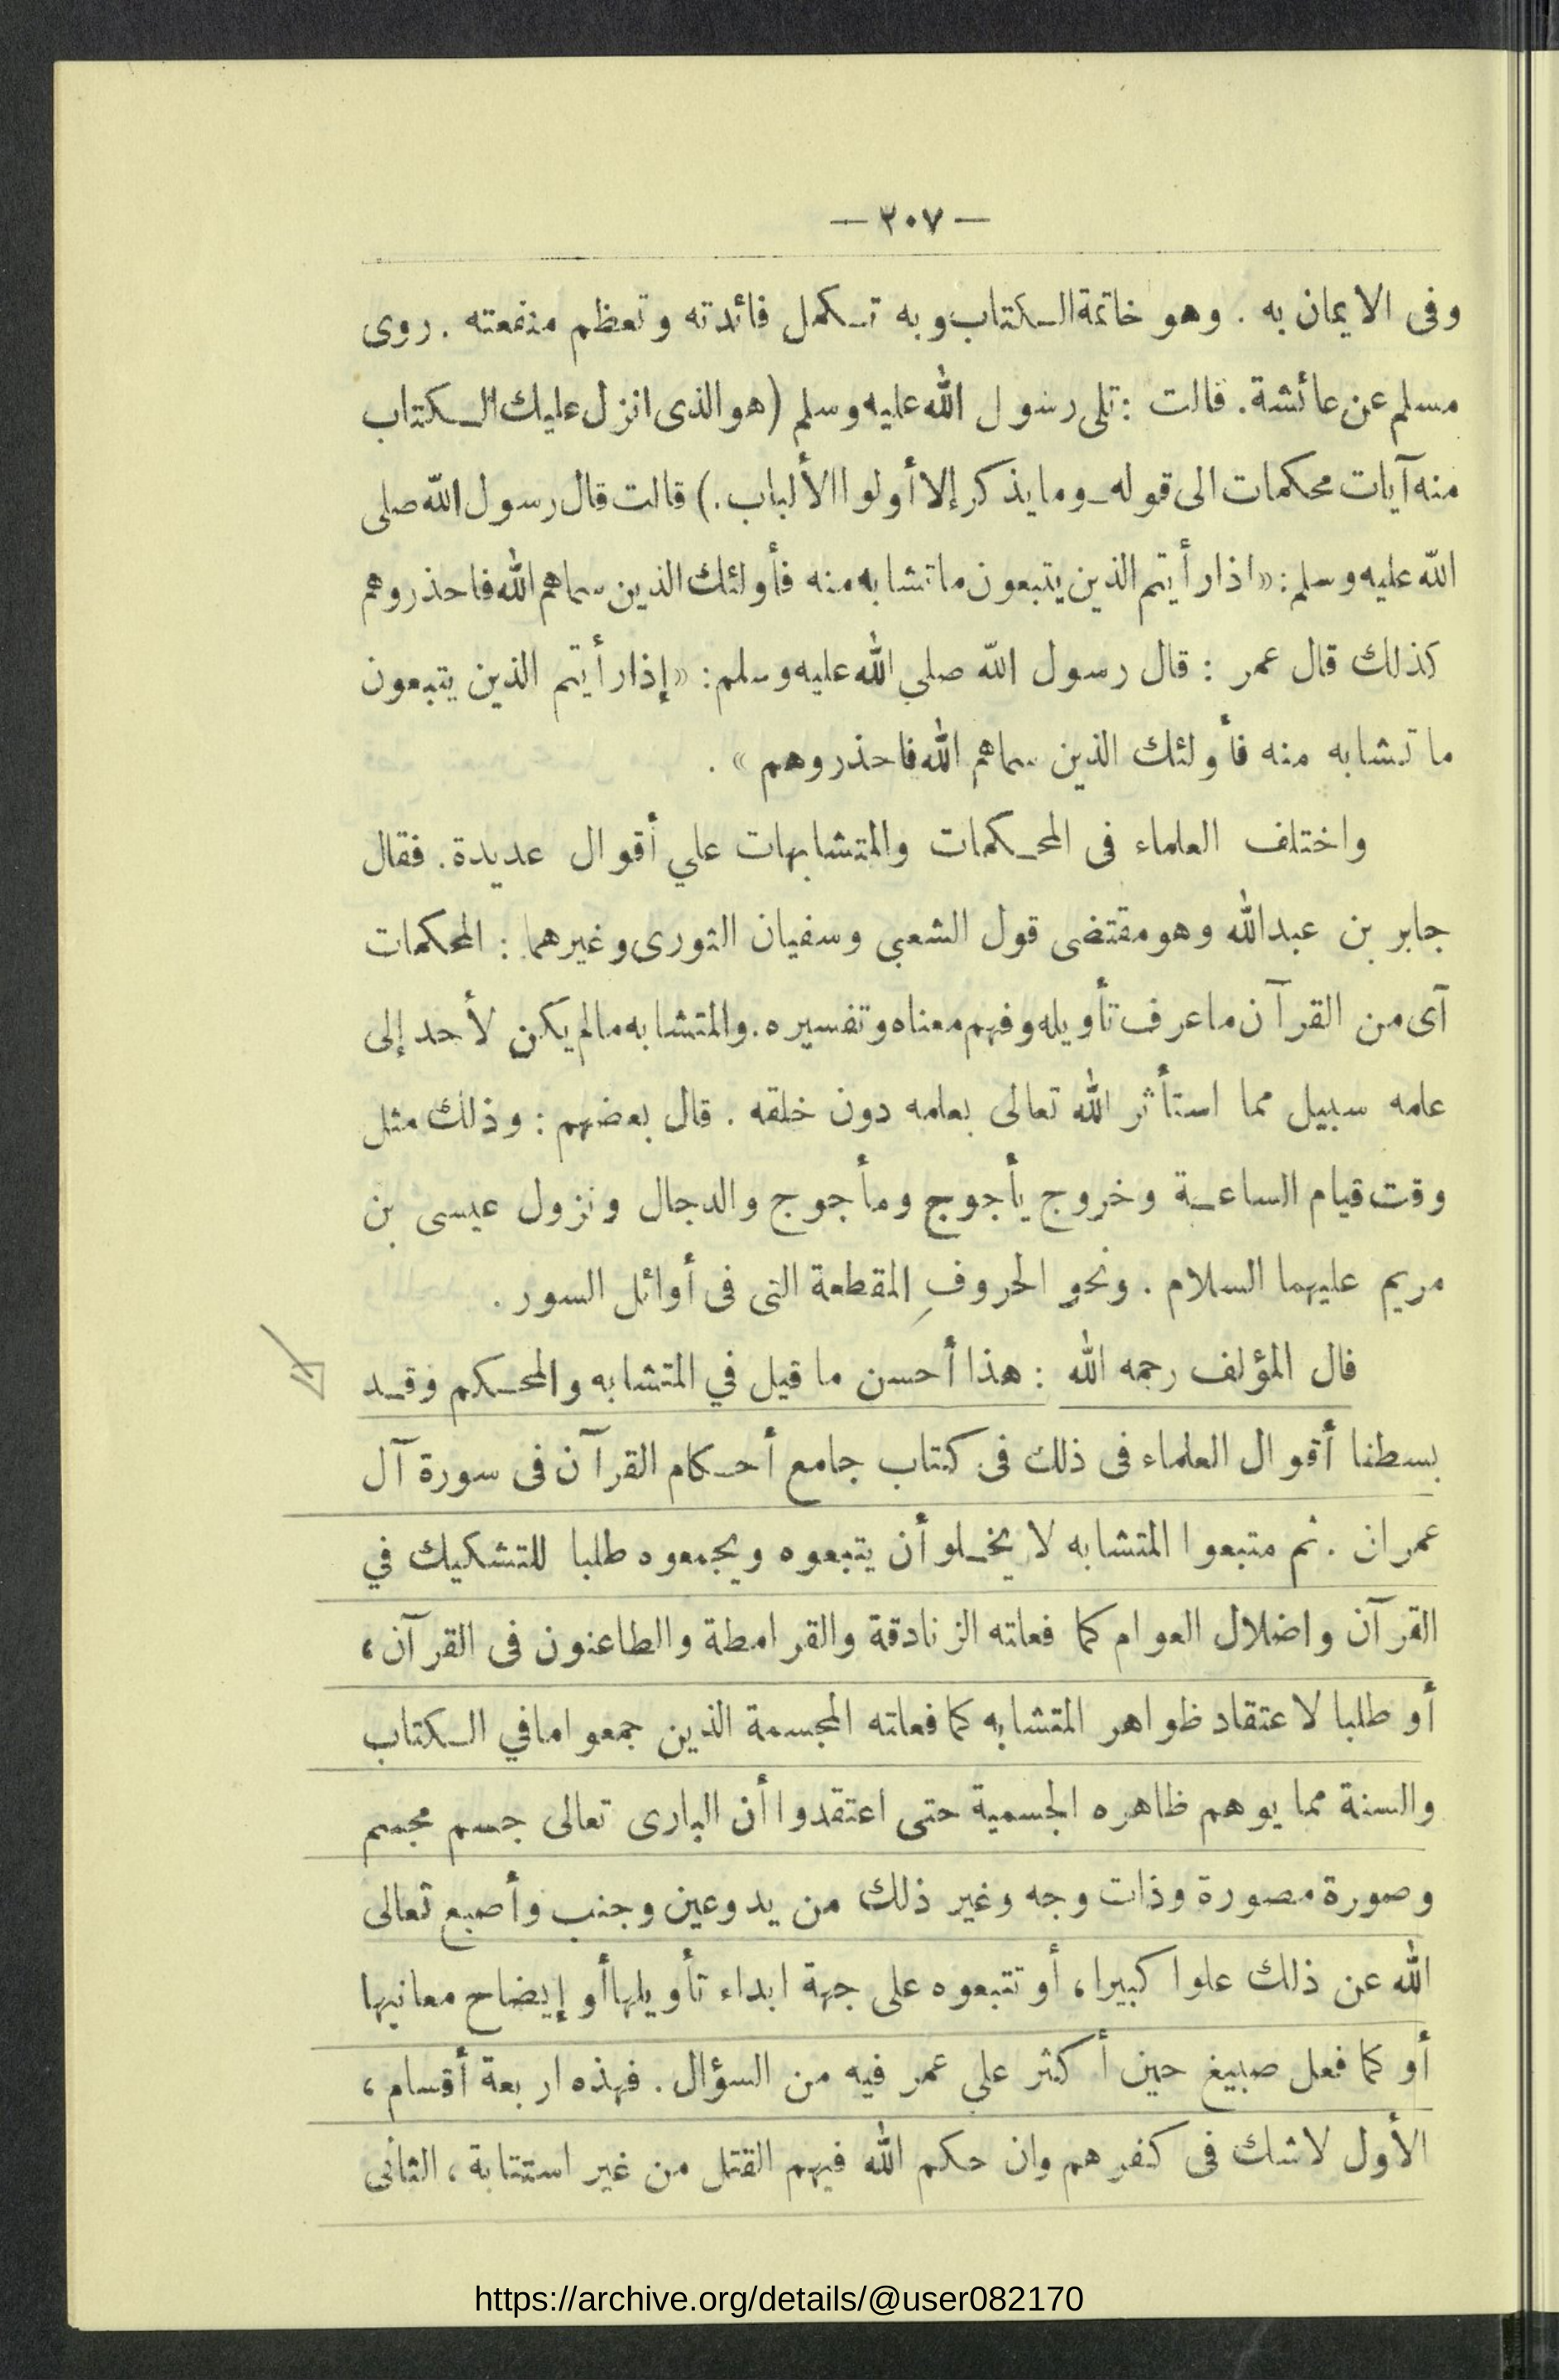 — ٢٠٧ —
وفى الايمان به . وهو خاتمة الكتاب وبه تكمل فائدته وتعظم منفعته . روى
مسلم عن عائشة . قالت : تلى رسول الله عليه وسلم ( هو الذى انزل عليك الكتاب
منه آيات محكمات الى قوله ـ وما يذكر إلا أولوا الألباب . ) قالت قال رسول الله صلى
الله عليه وسلم : « اذا رأيتم الذين يتبعون ما تشابه منه فأولئك الذين سماهم الله فاحذروهم
كذلك قال عمر : قال رسول الله صلي الله عليه وسلم : « إذا رأيتم الذين يتبعون
ما تشابه منه فأولئك الذين سماهم الله فاحذروهم » .
واختلف العلماء فى المحكمات والمتشابهات علي أقوال عديدة . فقال
جابر بن عبدالله وهو مقتضى قول الشعبى وسفيان الثورى وغيرهما : المحكمات
آى من القرآن ما عرف تأويله وفهم معناه وتفسيره . والمتشابه مالم يكن لأحد إلى
علمه سبيل مما استأثر الله تعالى بعلمه دون خلقه . قال بعضهم : وذلك مثل
وقت قيام الساعة وخروج يأجوج ومأجوج والدجال ونزول عيسى بن
مريم عليهما السلام . ونحو الحروفِ المقطعة التى فى أوائل السور .
قال المؤلف رحمه الله : هذا أحسن ما قيل في المتشابه والمحكم وقد
بسطنا أقوال العلماء فى ذلك فى كتاب جامع أحكام القرآن فى سورة آل
عمران . ثم متبعوا المتشابه لا يخلو أن يتبعوه ويجمعوه طلبا للتشكيك في
القرآن واضلال العوام كما فعلته الزنادقة والقرامطة والطاعنون فى القرآن ،
أو طلبا لاعتقاد ظواهر المتشابه كما فعلته المجسمة الذين جمعوا مافي الكتاب
والسنة مما يوهم ظاهره الجسمية حتى اعتقدوا أن البارى تعالى جسم مجسم
وصورة مصورة وذات وجه وغير ذلك من يد وعين وجنب وأصبع تعالى
الله عن ذلك علوا كبيرا ، أو تتبعوه على جهة ابداء تأويلها أو إيضاح معانيها
أو كما فعل صبيغ حين أكثر علي عمر فيه من السؤال . فهذه اربعة أقسام ،
الأول لاشك فى كفرهم وان حكم الله فيهم القتل من غير استتابة ، الثانى
https://archive.org/details/@user082170